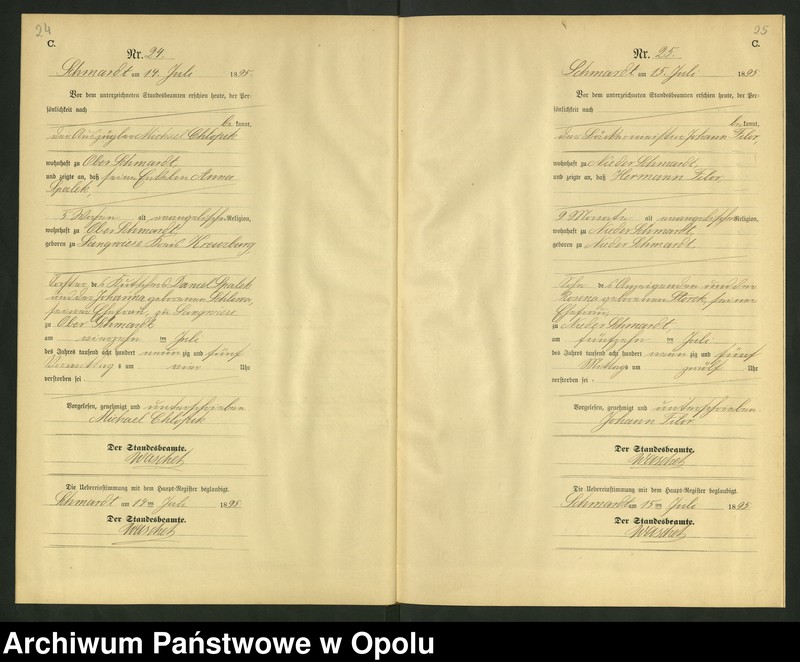 24
C.
Nr. 24.
Schmardt am 14. Juli 1895.
Vor dem unterzeichneten Standesbeamten erschien heute, der Per-
sönlichkeit nach
be kannt,
der Auszügler Michael Chlopek
wohnhaft zu Ober Schmardt,
und zeigte an, daß seine Enkelin Anna
Spalek,
5 Wochen alt evangelischer Religion,
wohnhaft zu Ober Schmardt
geboren zu Sangwiese Kreis Kreuzburg
Tochter des Kutschers Daniel Spalek
und der Johanna geborenen
seiner Ehefrau, zu Sangwiese
zu Ober Schmardt
am vierzehn ten Juli
des Jahres tausend acht hundert neun zig und fünf
Vormittag s um vier Uhr
verstorben sei.
Vorgelesen, genehmigt und unterschrieben
Michael Chlopek
Der Standesbeamte.
Waschek
Die Uebereinstimmung mit dem Haupt-Register beglaubigt.
Schmardt am 14ten Juli 1895.
Der Standesbeamte.
Waschek
25
C.
Nr. 25.
Schmardt am 15. Juli 1895.
Vor dem unterzeichneten Standesbeamten erschien heute, der Per-
sönlichkeit nach
be kannt,
der Johann Filor,
wohnhaft zu Nieder Schmardt,
und zeigte an, daß Hermann Filor
9 Monate alt evangelischer Religion,
wohnhaft zu Nieder Schmardt,
geboren zu Nieder Schmardt
Sohn des Anzeigenden und der
Rosina geborenen Storek, seiner
Ehefrau,
zu Nieder Schmardt,
am fünfzehn ten Juli
des Jahres tausend acht hundert neun zig und fünf
Mittags um zwölf Uhr
verstorben sei.
Vorgelesen, genehmigt und unterschrieben
Johann Filor
Der Standesbeamte.
Waschek
Die Uebereinstimmung mit dem Haupt-Register beglaubigt.
Schmardt am 15ten Juli 1895.
Der Standesbeamte.
Waschek
Archiwum Państwowe w Opolu